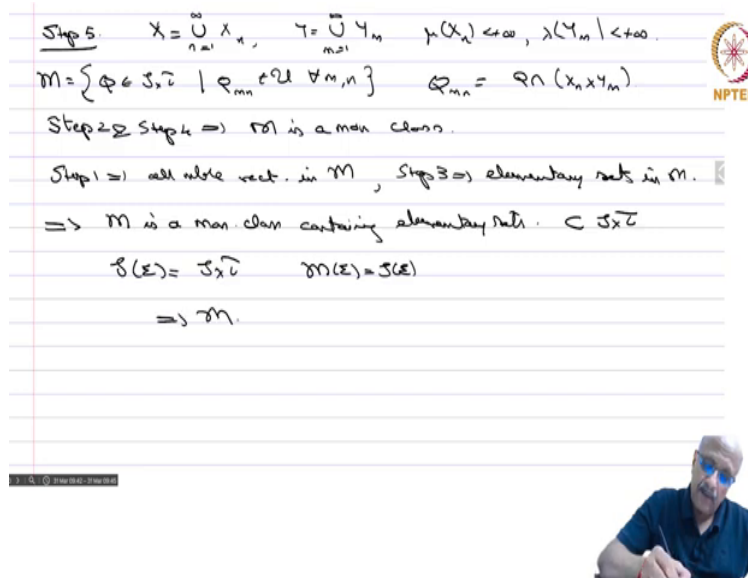 Step 5. X = ∪_{n=1}^{∞} X_n, Y = ∪_{m=1}^{∞} Y_m μ(X_n) < +∞, λ(Y_m) < +∞.
M = {Q ∈ S×τ | Q_{mn} ∈ U ∀ m,n} Q_{mn} = Q ∩ (X_n × Y_m)
NPTE
Step 2 & Step 4 ⇒ M is a mon class.
Step 1 ⇒ all mble rect. in M, Step 3 ⇒ elementary sets in M.
⇒ M is a mon. class containing elementary sets. ⊂ S×τ
S(Σ) = S×τ M(Σ) = S(Σ)
⇒ M.